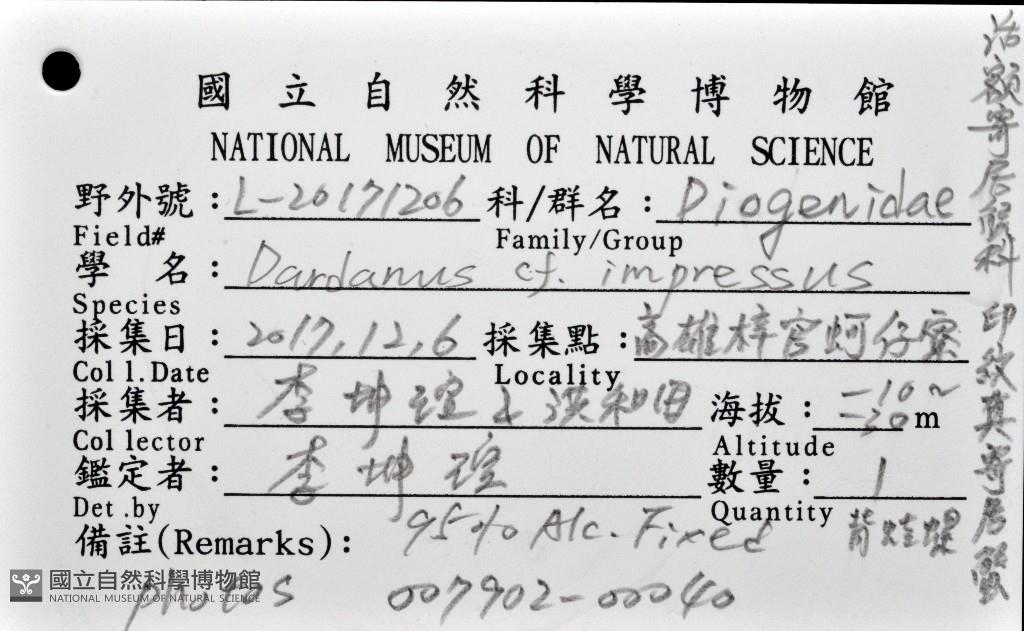 國立自然科學博物館
NATIONAL MUSEUM OF NATURAL SCIENCE
野外號:L-20171206 科/群名:Diogenidae
Field# Family/Group
學 名:Dardanus cf. impressus
Species
採集日:2017,12,6 採集點:高雄梓官蚵仔寮
Coll.Date Locality
採集者:李坤瑄 & 洪和田 海拔:-10~-30m
Collector Altitude
鑑定者:李坤瑄 數量:1
Det.by Quantity
備註(Remarks): 95% Alc. Fixed
photos 007902-00040
活額寄居蟹科 印紋真寄居蟹
國立自然科學博物館
NATIONAL MUSEUM OF NATURAL SCIENCE